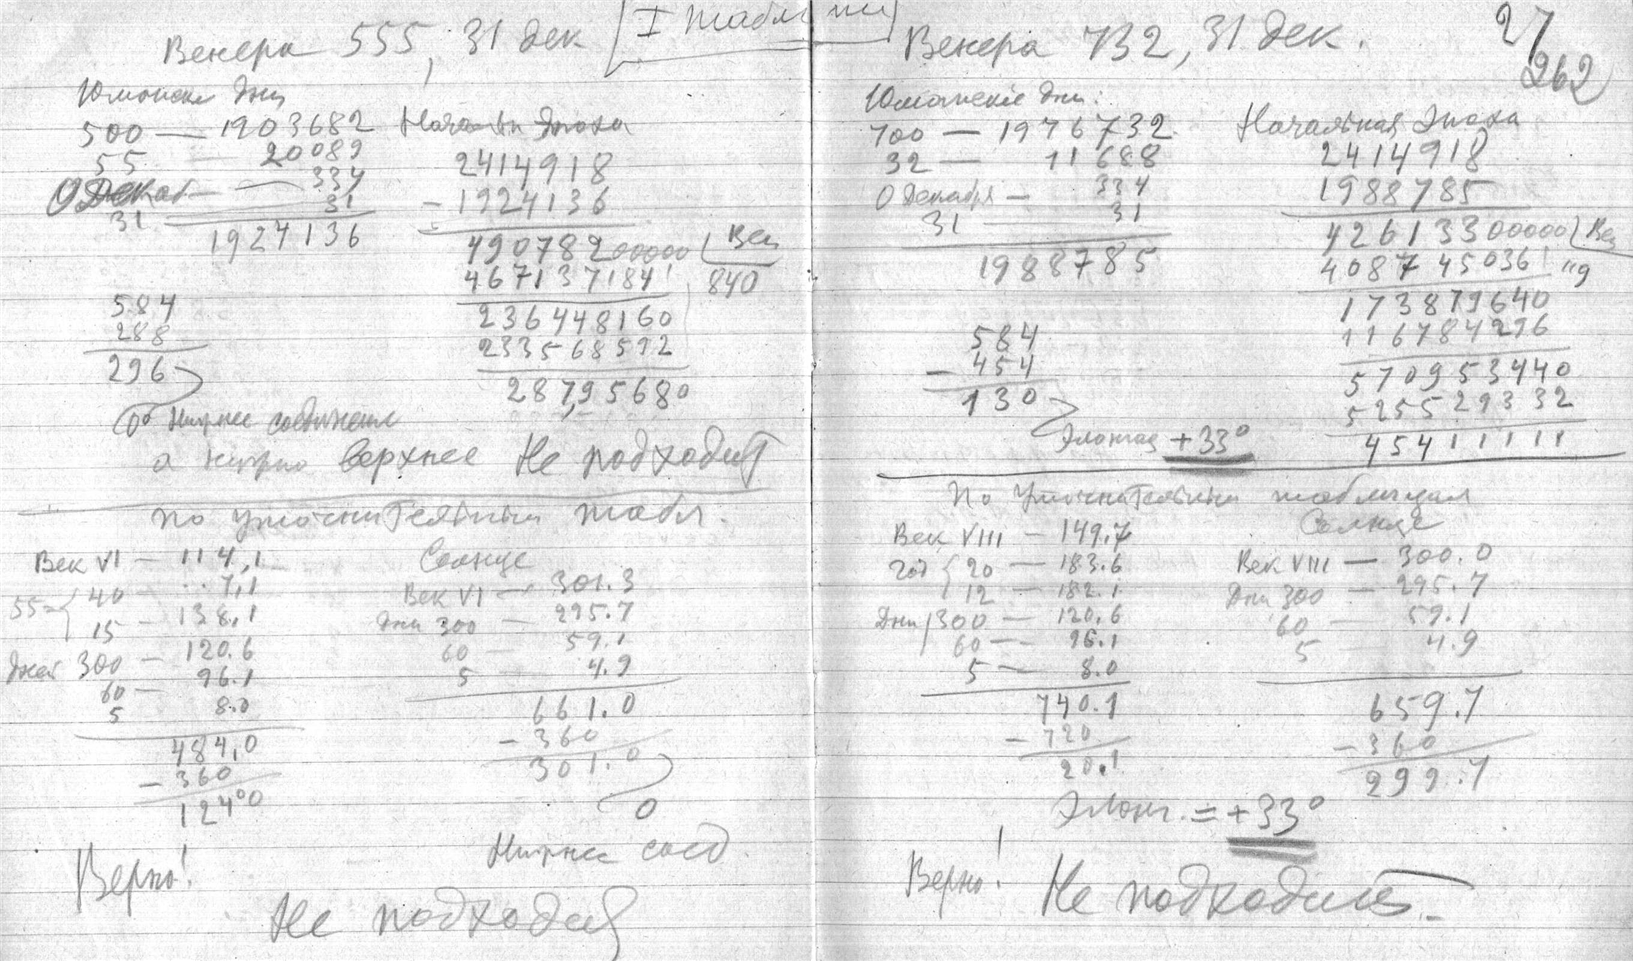 Венера 555, 31 дек
I табл
Юлианск дни
500 — 1903682
55 — 20089
0 Декаб — 334
31 31
1924136
Начальн Эпоха
2414918
- 1924136
49078200000 Вен
4671371841 840
236448160
233568592
28795680
584
288
296
0° Нижнее соединение
а нужно верхнее Не подходит
По уточнительным табл.
Век VI — 114,1
55 40 — 7,1
15 — 138,1
Дней 300 — 120.6
60 — 96.1
5 8.0
484,0
- 360
124°0
Солнце
Век VI — 301.3
Дни 300 — 295.7
60 — 59.1
5 4.9
661.0
- 360
301.0
0
Нижнее соед
Верно!
Не подходит
Венера 732, 31 дек.
27
262
Юлианские дни:
700 — 1976732
32 — 11688
0 Декабря — 334
31 31
1988785
Начальная Эпоха
2414918
1988785
42613300000 Вен
4087450361 "9
173879640
116784296
570953440
525529332
45411111
584
- 454
130
Элонгац +33°
По уточнительным таблицам
Век VIII — 149.7
год 20 — 183.6
12 — 182.1
Дни 300 — 120.6
60 — 96.1
5 — 8.0
740.1
- 720
20.1
Солнце
Век VIII — 300.0
Дни 300 — 295.7
60 — 59.1
5 4.9
659.7
- 360
299.7
Элонг. = +33°
Верно!
Не подходит.